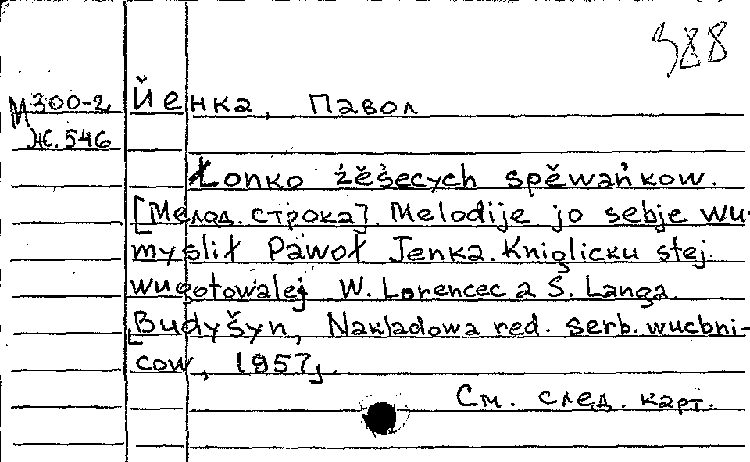 388
М300-2 Йенка, Павол
Ж.546
Łonko źěšecych spěwańkow.
[Мелод. строка]. Melodije jo sebje wu-
myslił Pawoł Jenka. Kniglicku stej
wugotowalej W. Lorencec a S. Langa.
[Budyšyn, Nakladowa red. serb. wucbni-
cow, 1957].
См. след. карт.